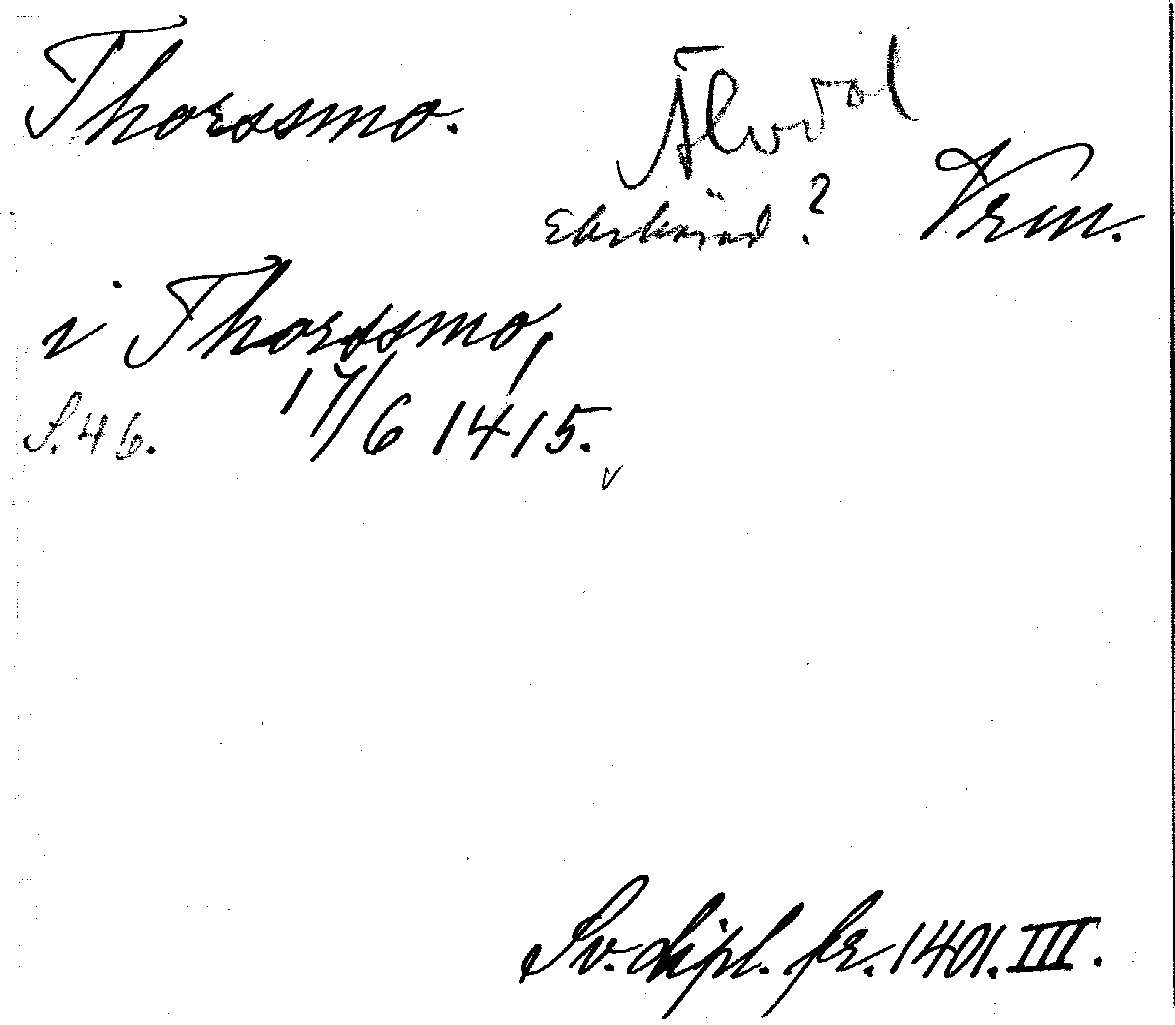 Thorssmo.
Älvdal
Ekshärad? Vrm.
i Thorssmo,
S. 46. 17/6 1415.
Sv. dipl. fr. 1401. III.